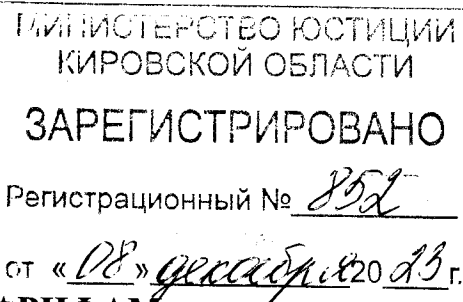 МИНИСТЕРСТВО ЮСТИЦИИ
КИРОВСКОЙ ОБЛАСТИ
ЗАРЕГИСТРИРОВАНО
Регистрационный № 852
от «08» декабря 2023 г.